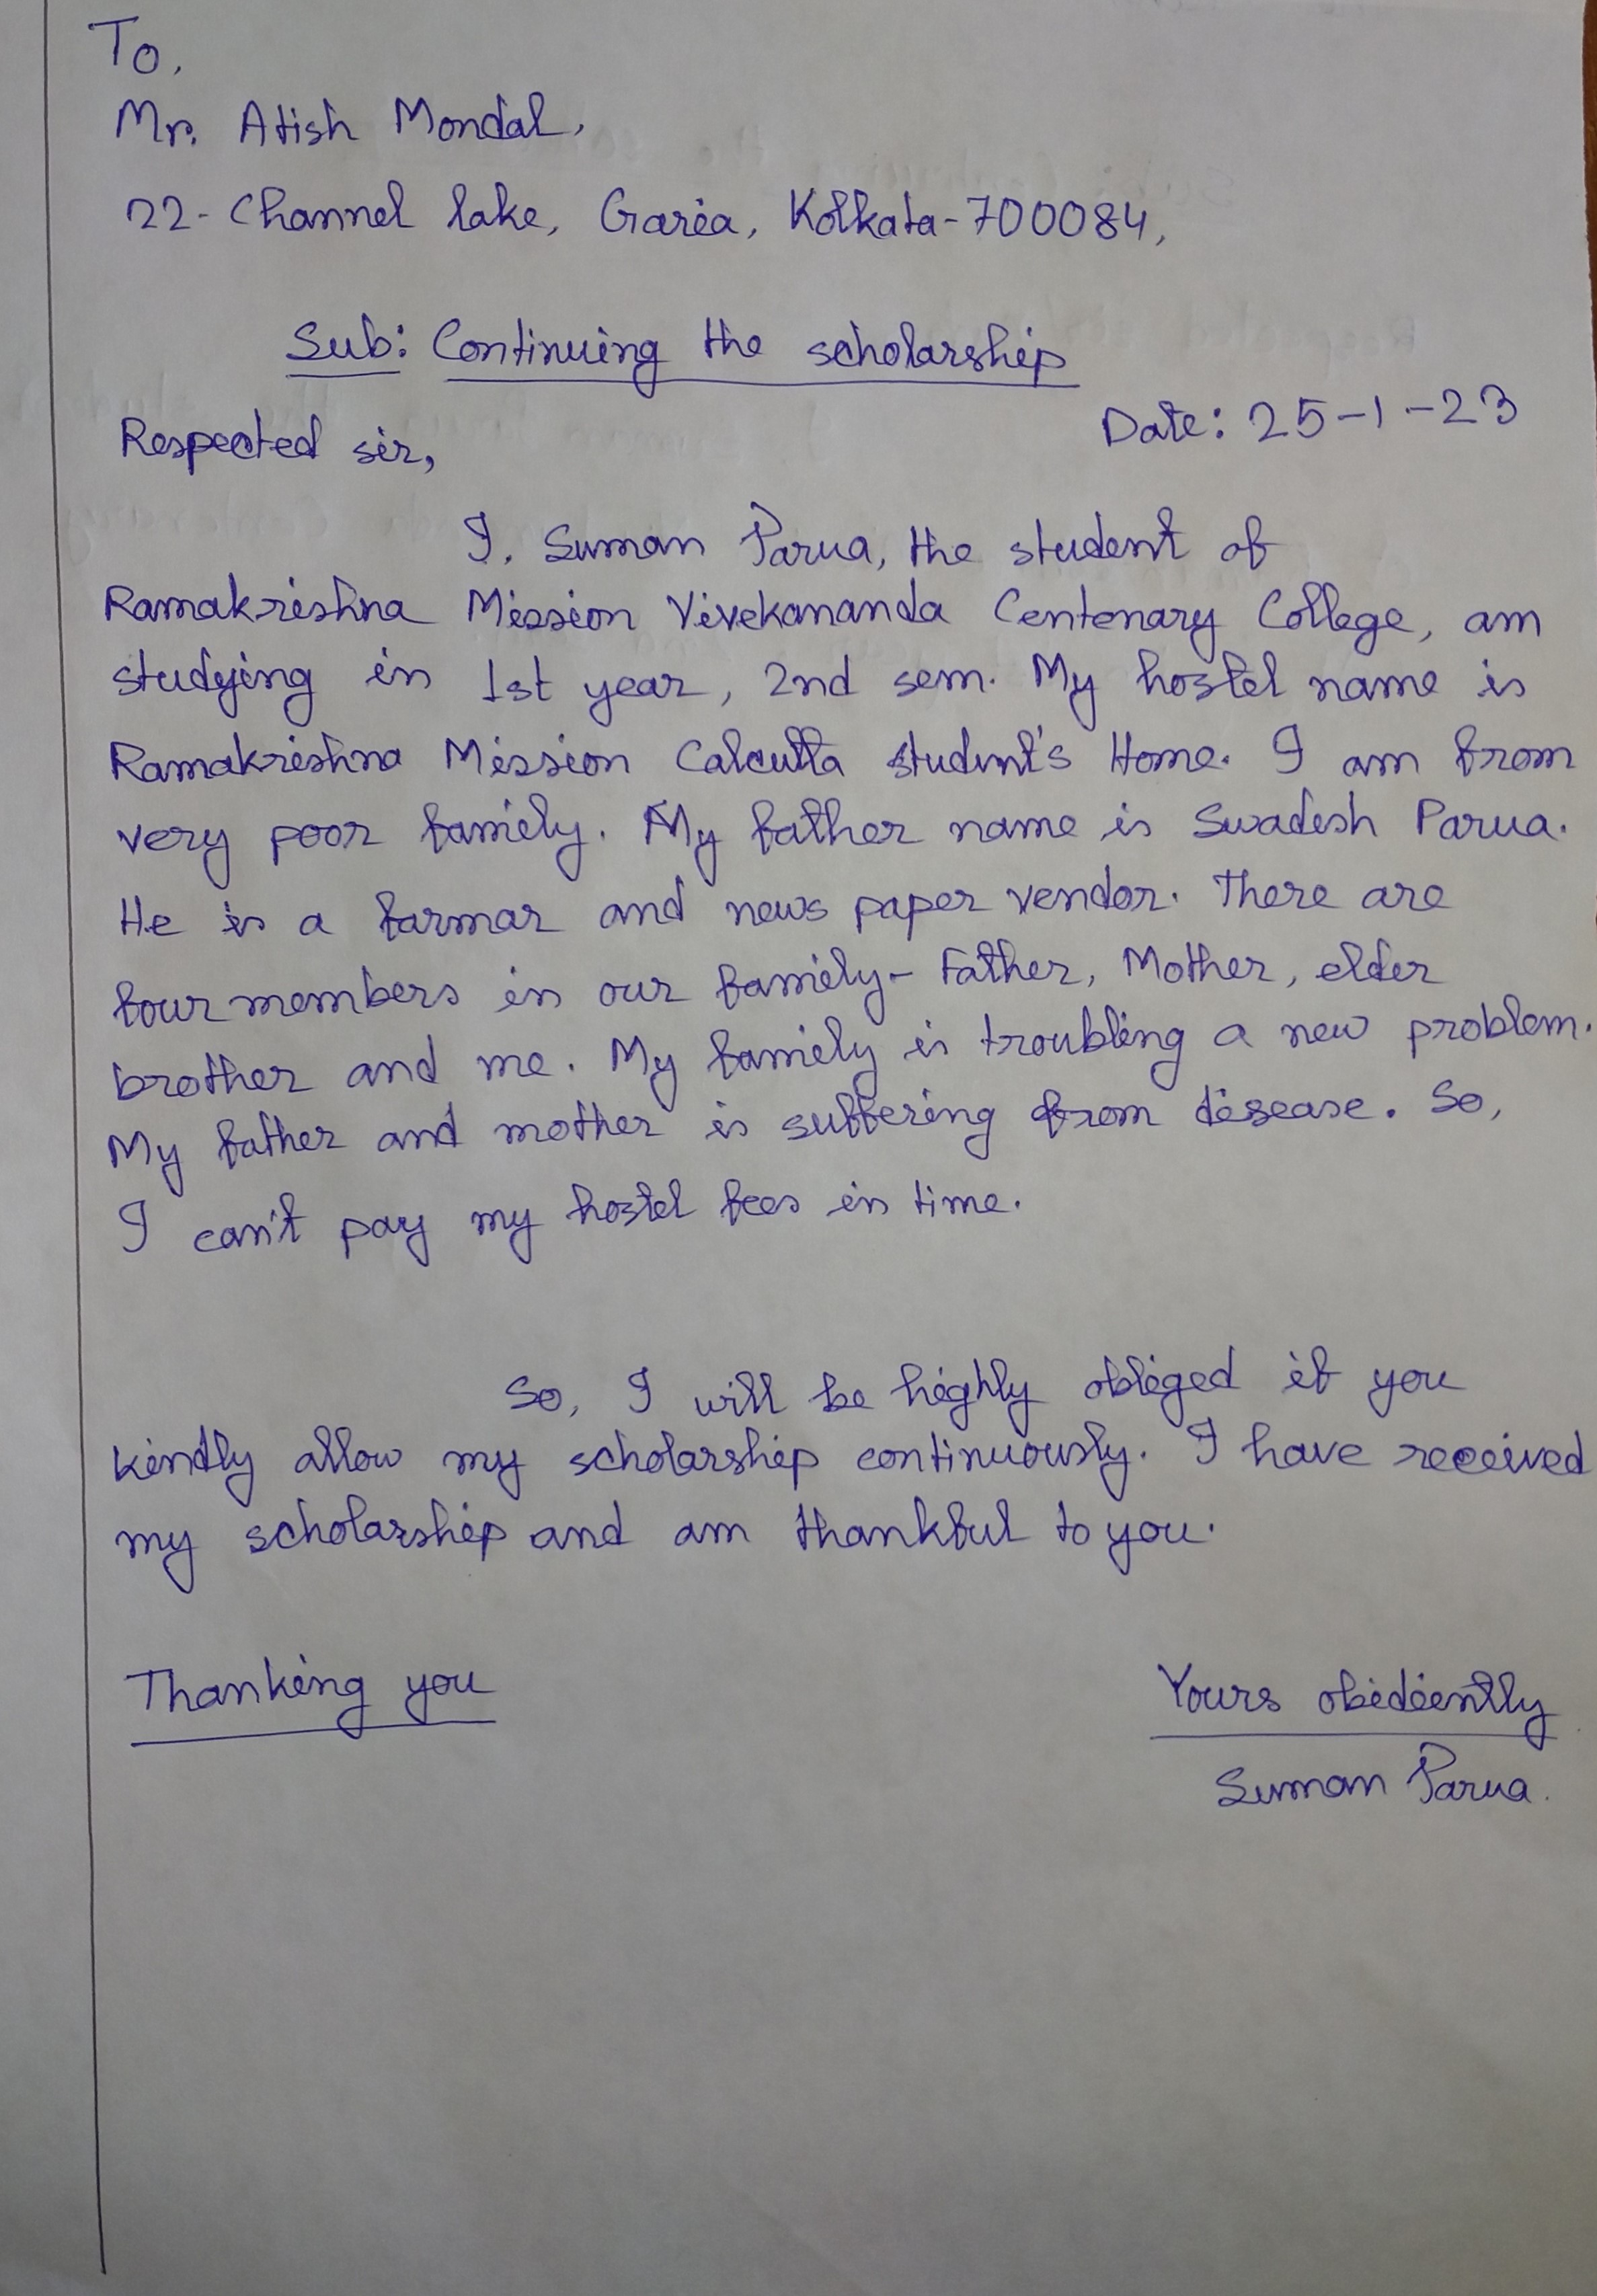 To,
Mr. Atish Mondal,
22- Channel lake, Garia, Kolkata-700084,
Sub: Continuing the scholarship
Date: 25-1-23
Respected sir,
I, Suman Parua, the student of
Ramakrishna Mission Vivekananda Centenary College, am
studying in 1st year, 2nd sem. My hostel name is
Ramakrishna Mission Calcutta student's Home. I am from
very poor family. My father name is Swadesh Parua.
He is a farmar and news paper vendor. There are
four members in our family- Father, Mother, elder
brother and me. My family is troubling a new problem.
My father and mother is suffering from disease. So,
I can't pay my hostel fees in time.
So, I will be highly obliged if you
kindly allow my scholarship continuously. I have received
my scholarship and am thankful to you.
Thanking you
Yours obidiently
Suman Parua.